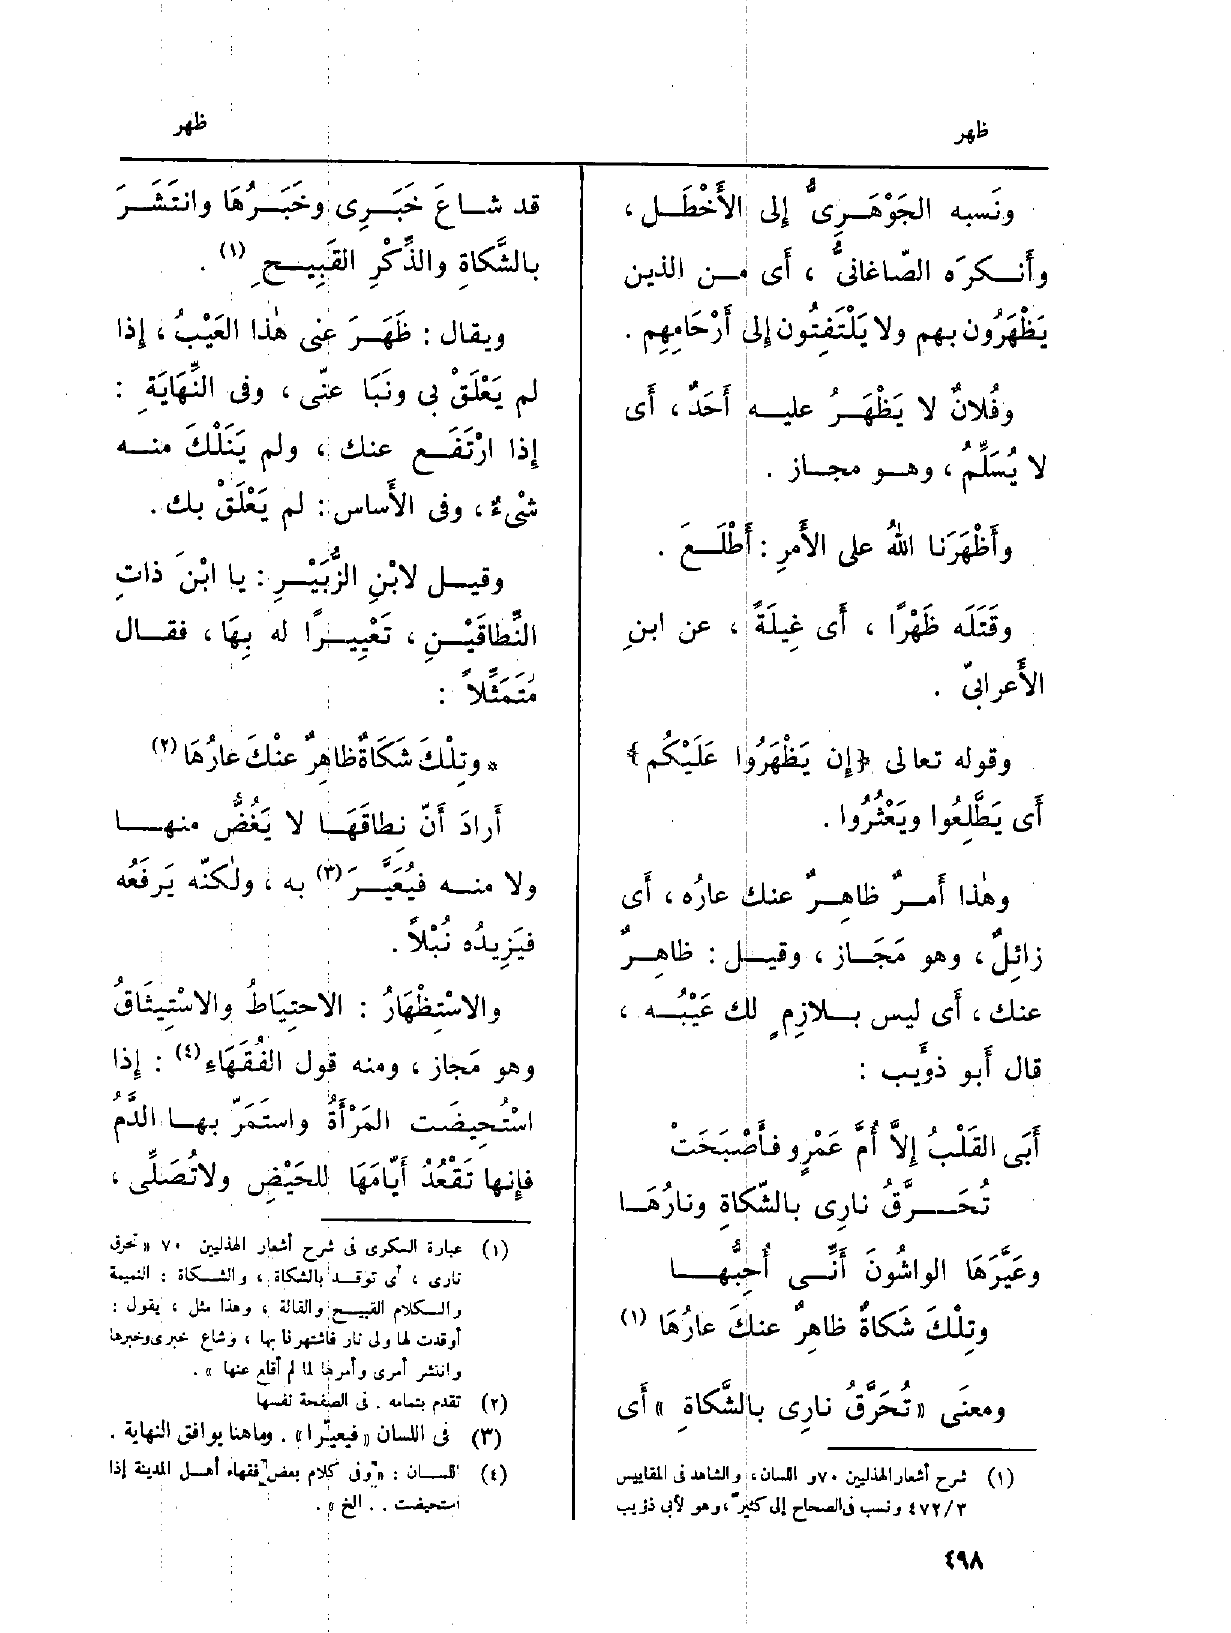 ظهر
ظهر
ونَسبه الجَوْهَرِىُّ إِلى الأَخْطَل ،
وأَنكرَه الصّاغانىُّ ، أَى من الذين
يَظْهَرُون بهم ولا يَلْتَفِتُون إِلى أَرْحَامِهِم .
وفُلانٌ لا يَظْهَرُ عليه أَحَدٌ ، أَى
لا يُسَلِّمُ ، وهو مجاز .
وأَظْهَرَنا اللهُ على الأَمرِ : أَطْلَعَ .
وقَتَلَه ظَهْرًا ، أَى غِيلَةً ، عن ابنِ
الأَعرابىّ .
وقوله تعالى {إِن يَظْهَرُوا عَلَيْكُم}
أَى يَطَّلِعُوا ويَعْثُرُوا .
وهٰذا أَمرٌ ظاهِرٌ عنك عارُه ، أَى
زائِلٌ ، وهو مَجَاز ، وقيل : ظاهِرٌ
عنك ، أَى ليس بلازِمٍ لك عَيْبُه ،
قال أَبو ذُؤَيب :
أَبَى القَلْبُ إِلاَّ أُمَّ عَمْرٍو فأَصْبَحَتْ
تُحَرَّقُ نارِى بالشَّكاةِ ونارُهَا
وعَيَّرَهَا الواشُونَ أَنِّى أُحِبُّهَا
وتِلْكَ شَكاةٌ ظاهِرٌ عنكَ عارُهَا (١)
ومعنَى «تُحَرَّقُ نارِى بالشَّكاةِ » أَى
(١) شرح أشعار الهذليين ٧٠ و اللسان ، والشاهد فى المقاييس
٤٧٢/٣ ونسب فى الصحاح إلى كثيّر ، وهو لأبى ذؤيب
قد شاعَ خَبَرِى وخَبَرُهَا وانتَشَرَ
بالشَّكاةِ والذِّكْرِ القَبِيحِ (١) .
ويقال : ظَهَرَ عنى هٰذا العَيْبُ ، إِذا
لم يَعْلَقْ بى ونَبَا عنّى ، وفى النِّهَايَةِ :
إِذا ارْتَفَع عنك ، ولم يَنَلْكَ منه
شىْءٌ ، وفى الأَساس : لم يَعْلَقْ بك .
وقيل لابْنِ الزُّبَيْرِ : يا ابْنَ ذاتِ
النِّطاقَيْنِ ، تَعْيِيرًا له بِهَا ، فقال
مُتَمَثِّلاً :
* وتِلْكَ شَكَاةٌ ظاهِرٌ عنْكَ عارُهَا (٢)
أَرادَ أَنّ نِطاقَهَا لا يَغُضُّ منها
ولا منه فيُعَيَّرَ (٣) به ، ولٰكنّه يَرفَعُه
فيَزِيدُه نُبْلاً .
والاسْتِظْهَارُ : الاحتِيَاطُ والاسْتِيثَاقُ
وهو مَجاز ، ومنه قول الفُقَهَاءِ (٤) : إِذا
اسْتُحِيضَت المَرْأَةُ واستَمَرّ بها الدَّمُ
فإِنها تَقْعُدُ أَيّامَهَا للحَيْضِ ولاتُصَلِّى ،
(١) عبارة السكرى فى شرح أشعار الهذليين ٧٠ « تحرق
نارى ، أى توقد بالشكاة ، والشكاة : النميمة
والكلام القبيح والقالة ، وهذا مثل ، يقول :
أوقدت لها ولى نار فاشتهرنا بها ، وشاع خبرى وخبرها
وانتشر أمرى وأمرها لما لم أقلع عنها » .
(٢) تقدم بتمامه . فى الصفحة نفسها
(٣) فى اللسان « فيعيّرا » . وماهنا يوافق النهاية .
(٤) اللسان : « وفى كلام بعض فقهاء أهل المدينة إذا
استحيضت . . الخ » .
٤٩٨